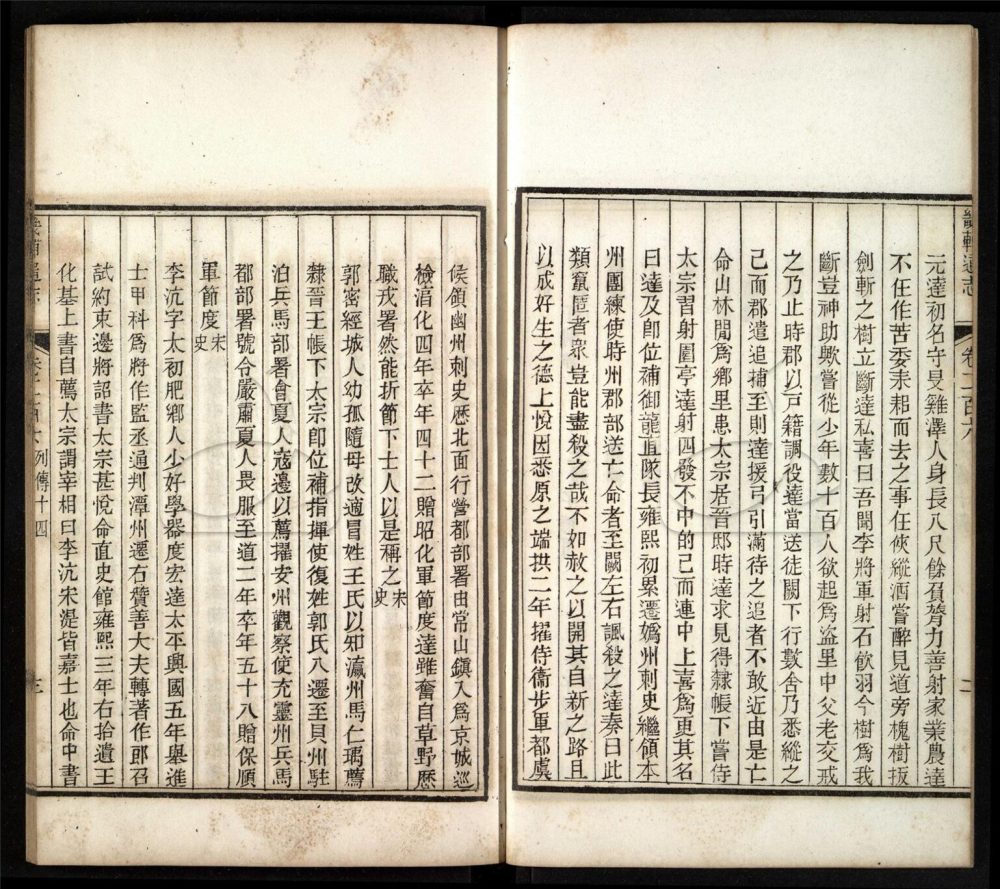 畿輔通志
卷二百六
二
元達初名守旻雞澤人身長八尺餘負膂力善射家業農達
不任作苦委耒耜而去之事任俠縱酒嘗醉見道旁槐樹拔
劍斬之樹立斷達私喜曰吾聞李將軍射石飲羽今樹爲我
斷豈神助歟嘗從少年數十百人欲起爲盜里中父老交戒
之乃止時郡以戸籍調役達當送徒闕下行數舍乃悉縱之
己而郡遣追捕至則達援弓引滿待之追者不敢近由是亡
命山林閒爲鄉里患太宗居晉邸時達求見得隸帳下嘗侍
太宗習射園亭達射四發不中的己而連中上喜爲更其名
曰達及卽位補御龍直隊長雍熙初累遷嬀州刺史繼領本
州團練使時州郡部送亡命者至闕左右諷殺之達奏曰此
類竄匿者衆豈能盡殺之哉不如赦之以開其自新之路且
以成好生之德上悅因悉原之端拱二年擢侍衞步軍都虞
候領幽州刺史歴北面行營都部署由常山鎭入爲京城巡
檢淳化四年卒年四十二贈昭化軍節度達雖奮自草野歴
職戎署然能折節下士人以是稱之宋史
郭密經城人幼孤隨母改適冒姓王氏以知瀛州馬仁瑀薦
隸晉王帳下太宗卽位補指揮使復姓郭氏八遷至貝州駐
泊兵馬部署會夏人寇邊以薦擢安州觀察使充靈州兵馬
都部署號令嚴肅夏人畏服至道二年卒年五十八贈保順
軍節度宋史
李沆字太初肥鄉人少好學器度宏達太平興國五年舉進
士甲科爲將作監丞通判潭州遷右贊善大夫轉著作郎召
試約束邊將詔書太宗甚悅命直史館雍熙三年右拾遺王
化基上書自薦太宗謂宰相曰李沆宋湜皆嘉士也命中書
畿輔通志
卷二百六 列傳十四
三